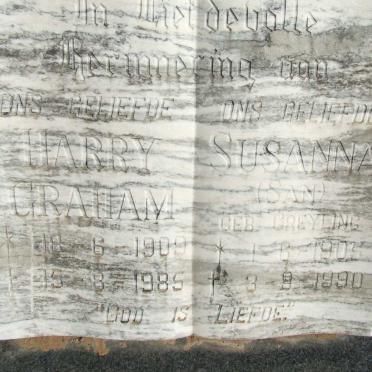 In Liefdevolle
Herinnering aan
ONS GELIEFDE
HARRY
GRAHAM
6 1909
8 1985
ONS GELIEFDE
SUSANNA
(SAN)
GEB GREYLING
9 1990
"GOD IS LIEFDE"